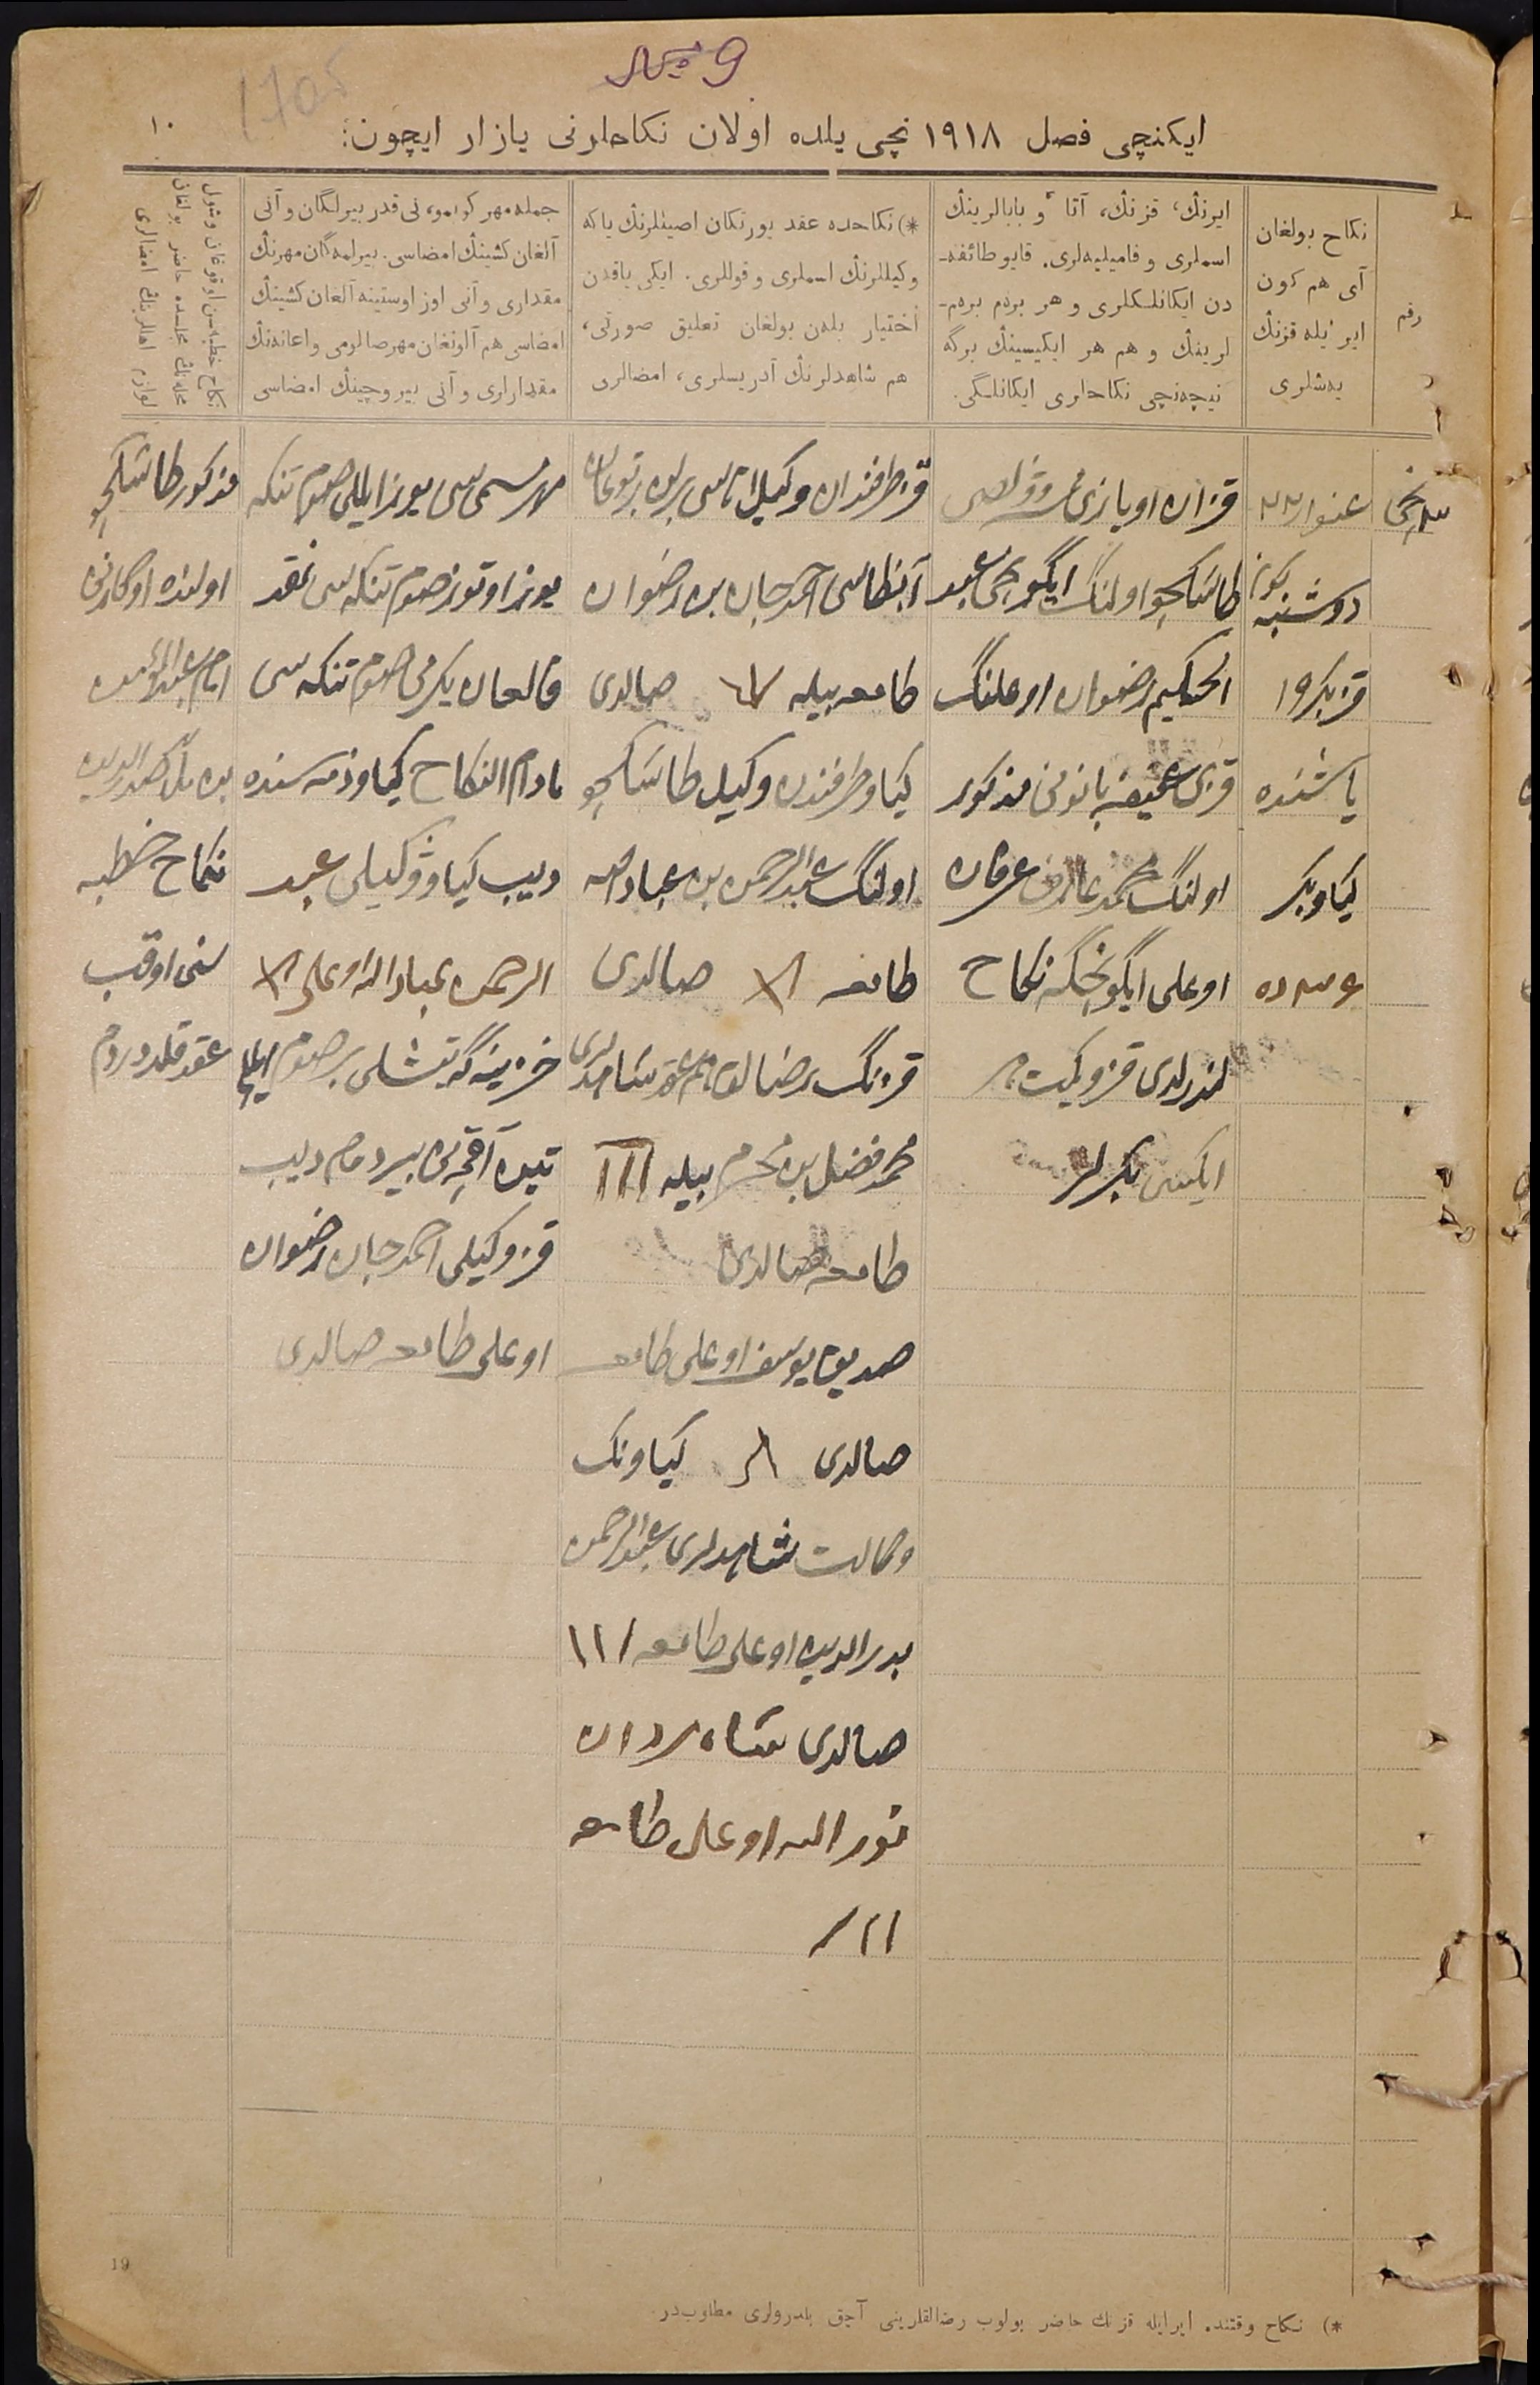 № 9
1705
١٠
ایكنچی فصل ١٩١٨ نچی یلده اولان نكاحلرنی یازار ایچون:
رقم
نكاح بولغان
آی هم كون
ایر ئیله قزنڭ
یەشلری
ایرنڭ، قزنڭ، آتا و بابالرینڭ
اسملری و فامیلیەلری. قایو طائفە-
دن ایكانلكلری و هر بردم بردم-
لرینڭ و هم هر ایكیسینڭ برگه
نیچەنچی نكاحلری ایكانلگی.
*) نكاحده عقد یورتكان اصیللرنڭ یاكه
وكیللرنڭ اسملری و قوللری. ایكی یاقدن
اختیار بلەن بولغان تعلیق صورتی،
هم شاهدلرنڭ آدریسلری، امضالری
جمله مهر كوپمو، نی قدر بیرلگان و آنی
آلغان كشینڭ امضاسی. بیرلمەگان مهرنڭ
مقداری و آنی اوز اوستینه آلغان كشینڭ
امضاسی هم آلونغان مهر صالومی و اعانەنڭ
مقدارلری و آنی بیروچینڭ امضاسی
نكاح خطبەسن اوقوغان و شول
مجلسده حاضر بولغان
امضالری
غنوار ٢٢
دوشنبه كون
قز بكر ١٩
یاشنده
كیاو بكر
ده
قزان اویازی
طاشكچو اولنڭ ایگونچی عبد
الحكیم رضوان اوغلنڭ
قزی عفیفه بانونی مذكور
اولنڭ محمد عارف عرفان
اوغلی ایگونچیگه نكاح
لندرلدی قز و كیت
ایكیسی بكرلر
قز طرفندان وكیل آناسی برله برتوغان
آبزطاسی احمدجان بن رضوان
طامعه بیله صالدی
كیاو طرفندن وكیل طاشكچو
اولنڭ عبدالرحمن بن عبادالله
طامعه صالدی
قزنڭ رضالق هم عقد شاهدلری
محمد فضل بن محرم بیله III
طامعه صالدی
صدیق یوسف اوغلی طامعه
صالدی كیاونڭ
وكالت شاهدلری عبدالرحمن
بدرالدین اوغلی طامعه ١١١
صالدی شاه مردان
نورالله اوغلی طامعه
١١/
مهر مسمی سی یوز ایللی صوم تنكه
یوز اوتوز صوم تنكه سی نقد
قالغان یكرمی صوم تنكه سی
مادام النكاح كیاو ذمه سنده
دیب كیاونڭ وكیلی عبد
الرحمن عبادالله اوغلی
خزینەگه تیشلی بر صوم ایللی
تین آقچەنی بیردم دیب
قز وكیلی احمدجان رضوان
اوغلی طامعه صالدی
مذكور طاشكچو
اولنده اوكازنی
امام عبدالمؤمن
بن ملا صدرالدین
نكاح خطبه
سنی اوقب
عقد قلدردم
19
*) نكاح وقتنده ایر ایله قزنڭ حاضر بولوب رضالقلرینی آچق بلدرولری مطلوبدر.